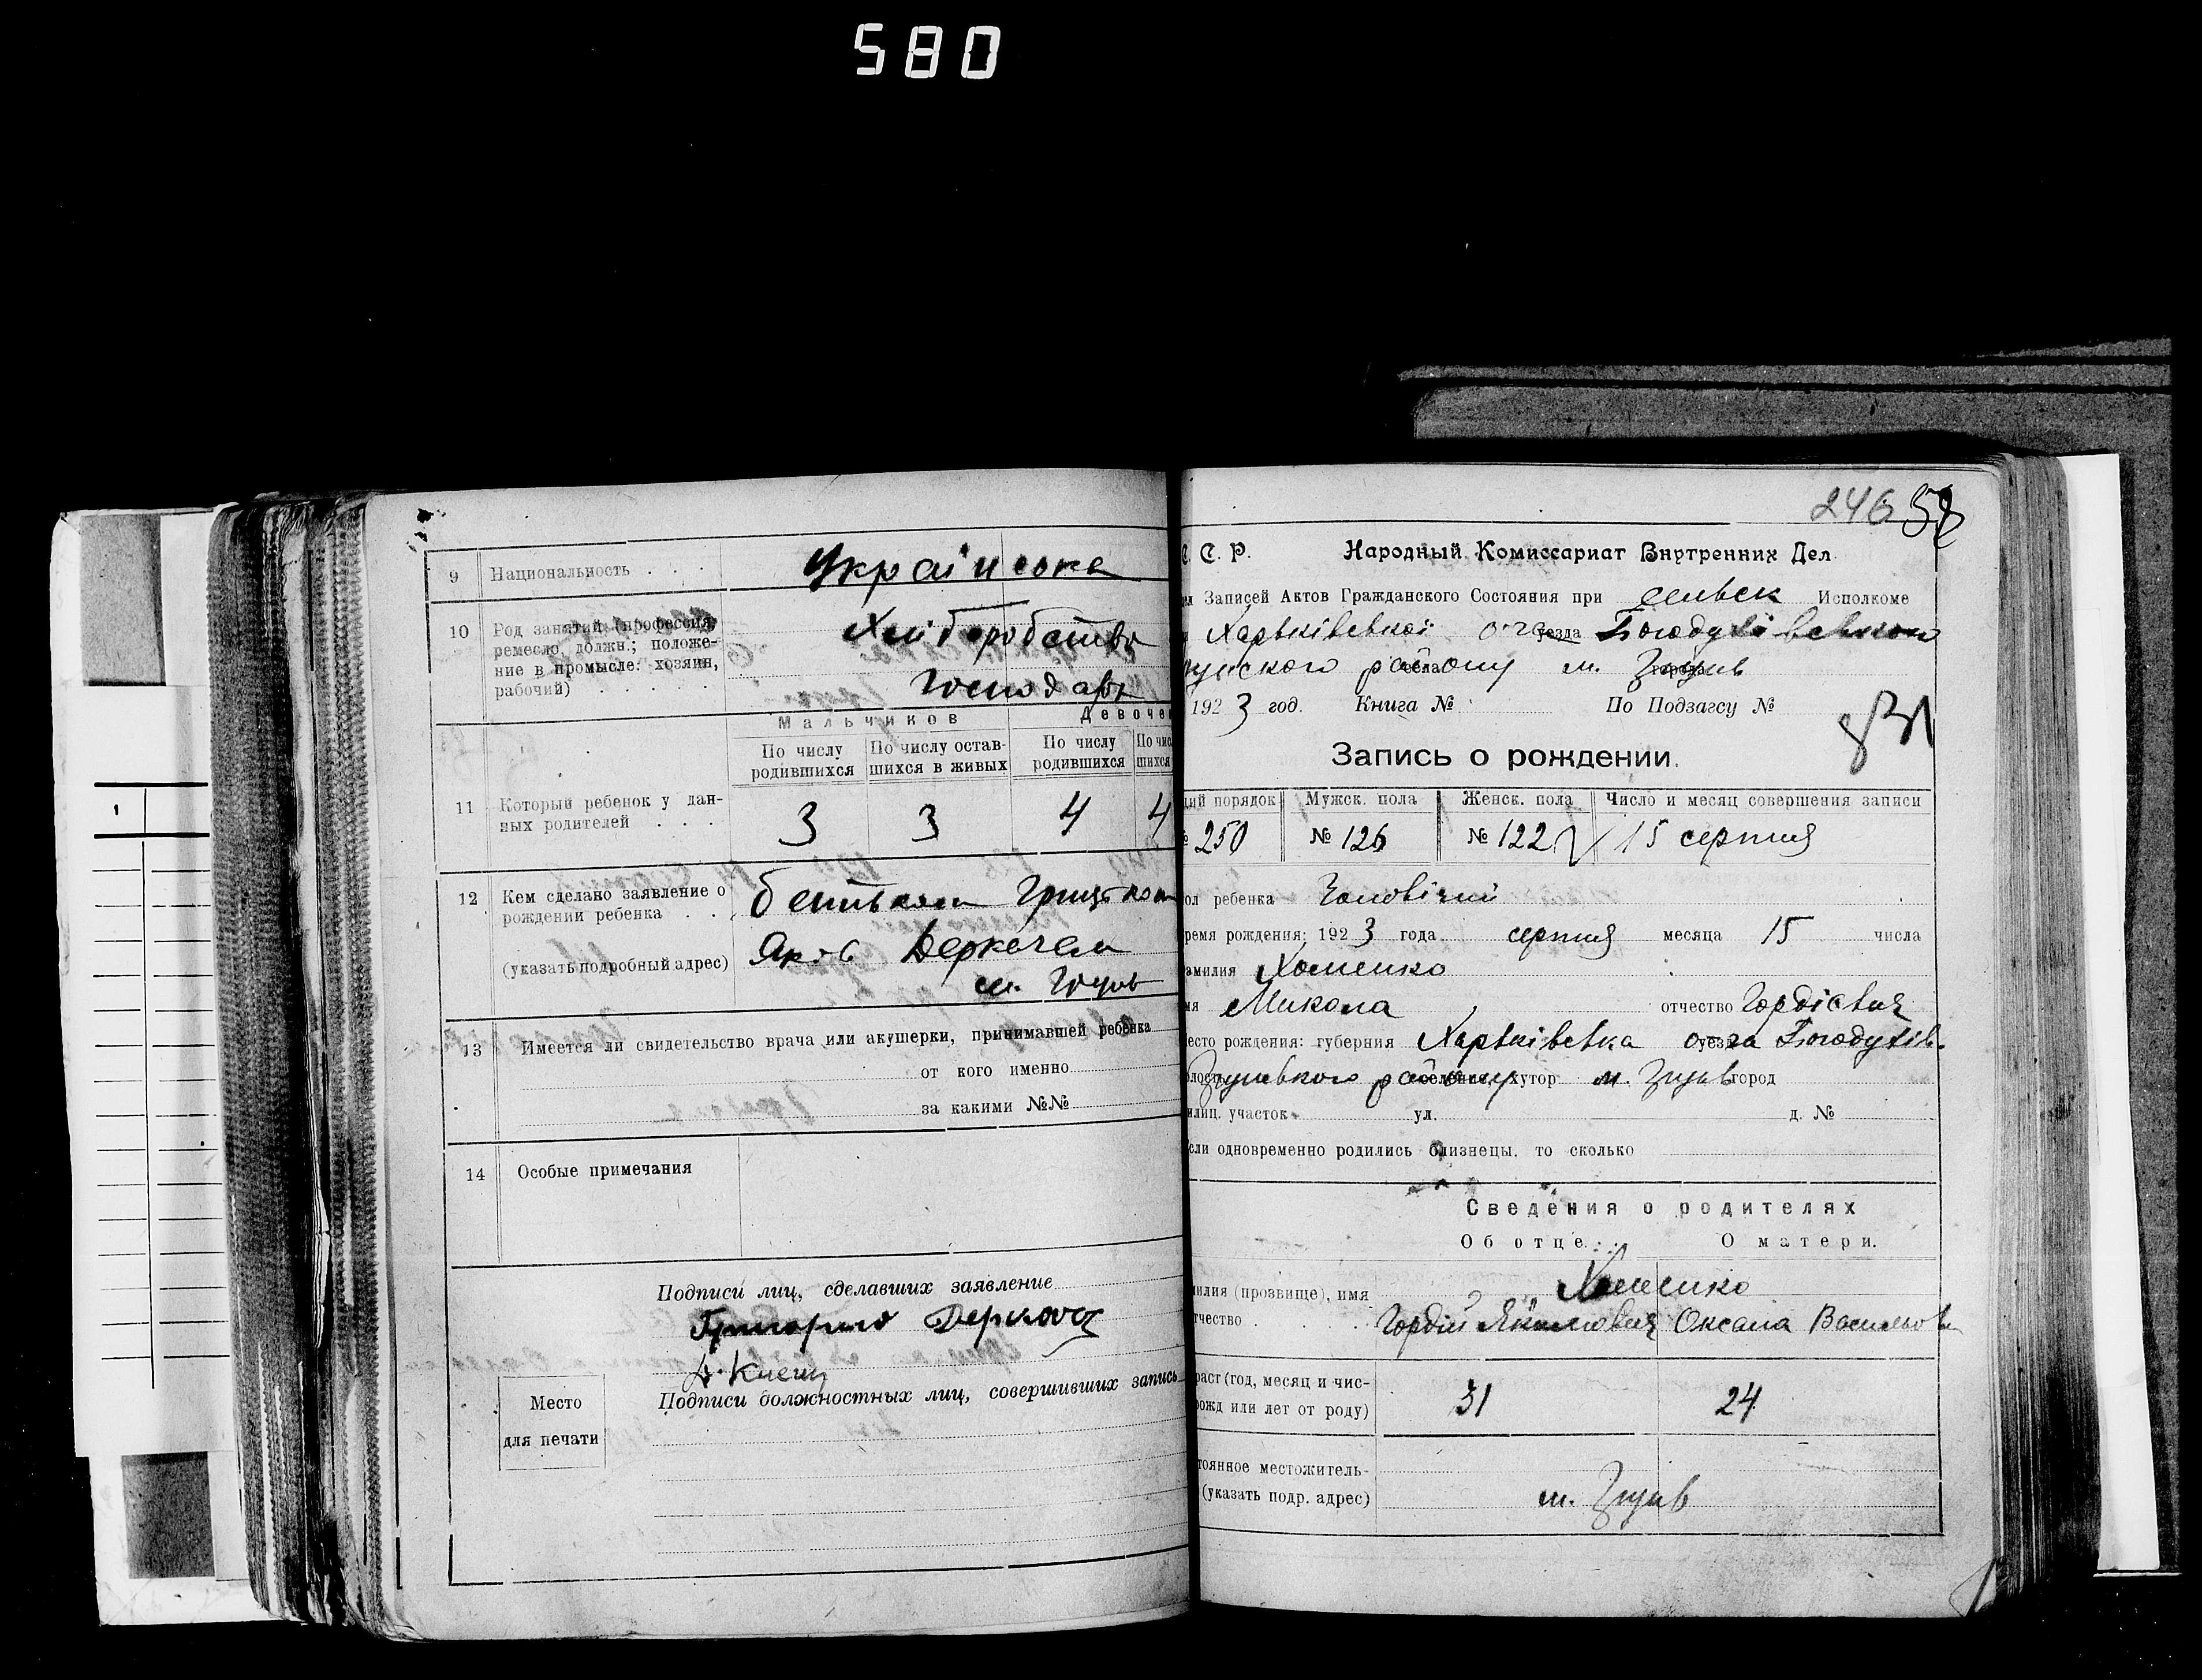 580
9 Национальность . . . Українська
10 Род занятий (профессия,
ремесло, должн.; положе-
ние в промысле: хозяин,
рабочий) . . . . . .
Хліборобство
Господарь
Мальчиков Девоче
По числу родившихся По числу остав-шихся в живых По числу родившихся По чис шихся
11 Который ребенок у дан-
ных родителей . . .
3 3 4 4
12 Кем сделано заявление о
рождении ребенка . . .
(указать подробный адрес)
Яков Деркачем
13 Имеется ли свидетельство врача или акушерки, принимавшей ребенка
от кого именно
за какими №№
14 Особые примечания
Подписи лиц, сделавших заявление
Деркач
Подписи должностных лиц, совершивших запись
Место
для печати
246 58
С. Р. Народный Комиссариат Внутренних Дел
Записей Актов Гражданского Состояния при сельск Исполкоме
Харьківської уезда
району м.
1923 год. Книга № По Подзагсу №
Запись о рождении.
порядок Мужск. пола Женск. пола Число и месяц совершения записи
250 № 126 № 122 15 серпня
ол ребенка Чоловічий
ремя рождения: 1923 года серпня месяца 15 числа
амилия Хоменко
мя Микола отчество Гордієвич
есто рождения: губерния Харьківська уезд Богодухів.
району хутор м. город
илиц. участок ул. д. №
сли одновременно родились близнецы, то сколько
Сведения о родителях
Об отце. О матери.
илия (прозвище), имя
тчество . . .
Хоменко
Гордій Якимович Оксана Васильовн
раст (год, месяц и чис-
рожд или лет от роду)
31 24
тоянное местожитель-
(указать подр. адрес)
м.